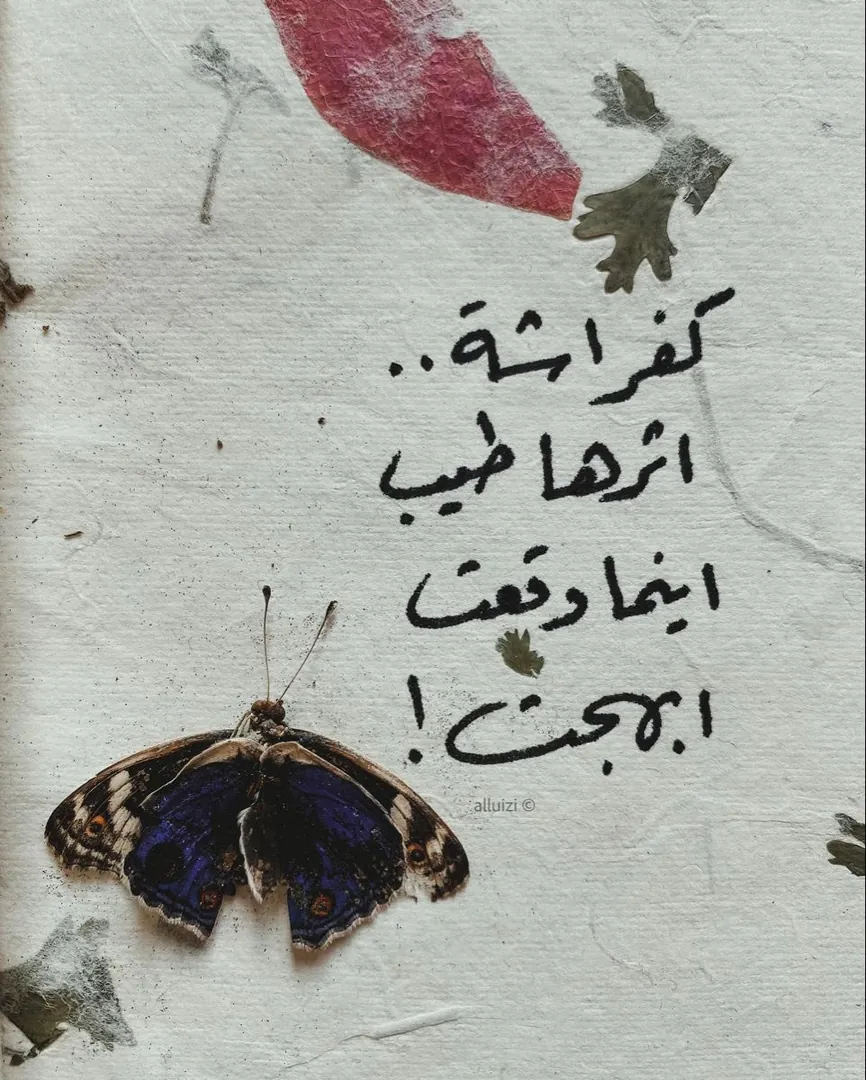 كفراشة..
اثرها طيب
اينما وقعت
ابهجت!
alluizi ©